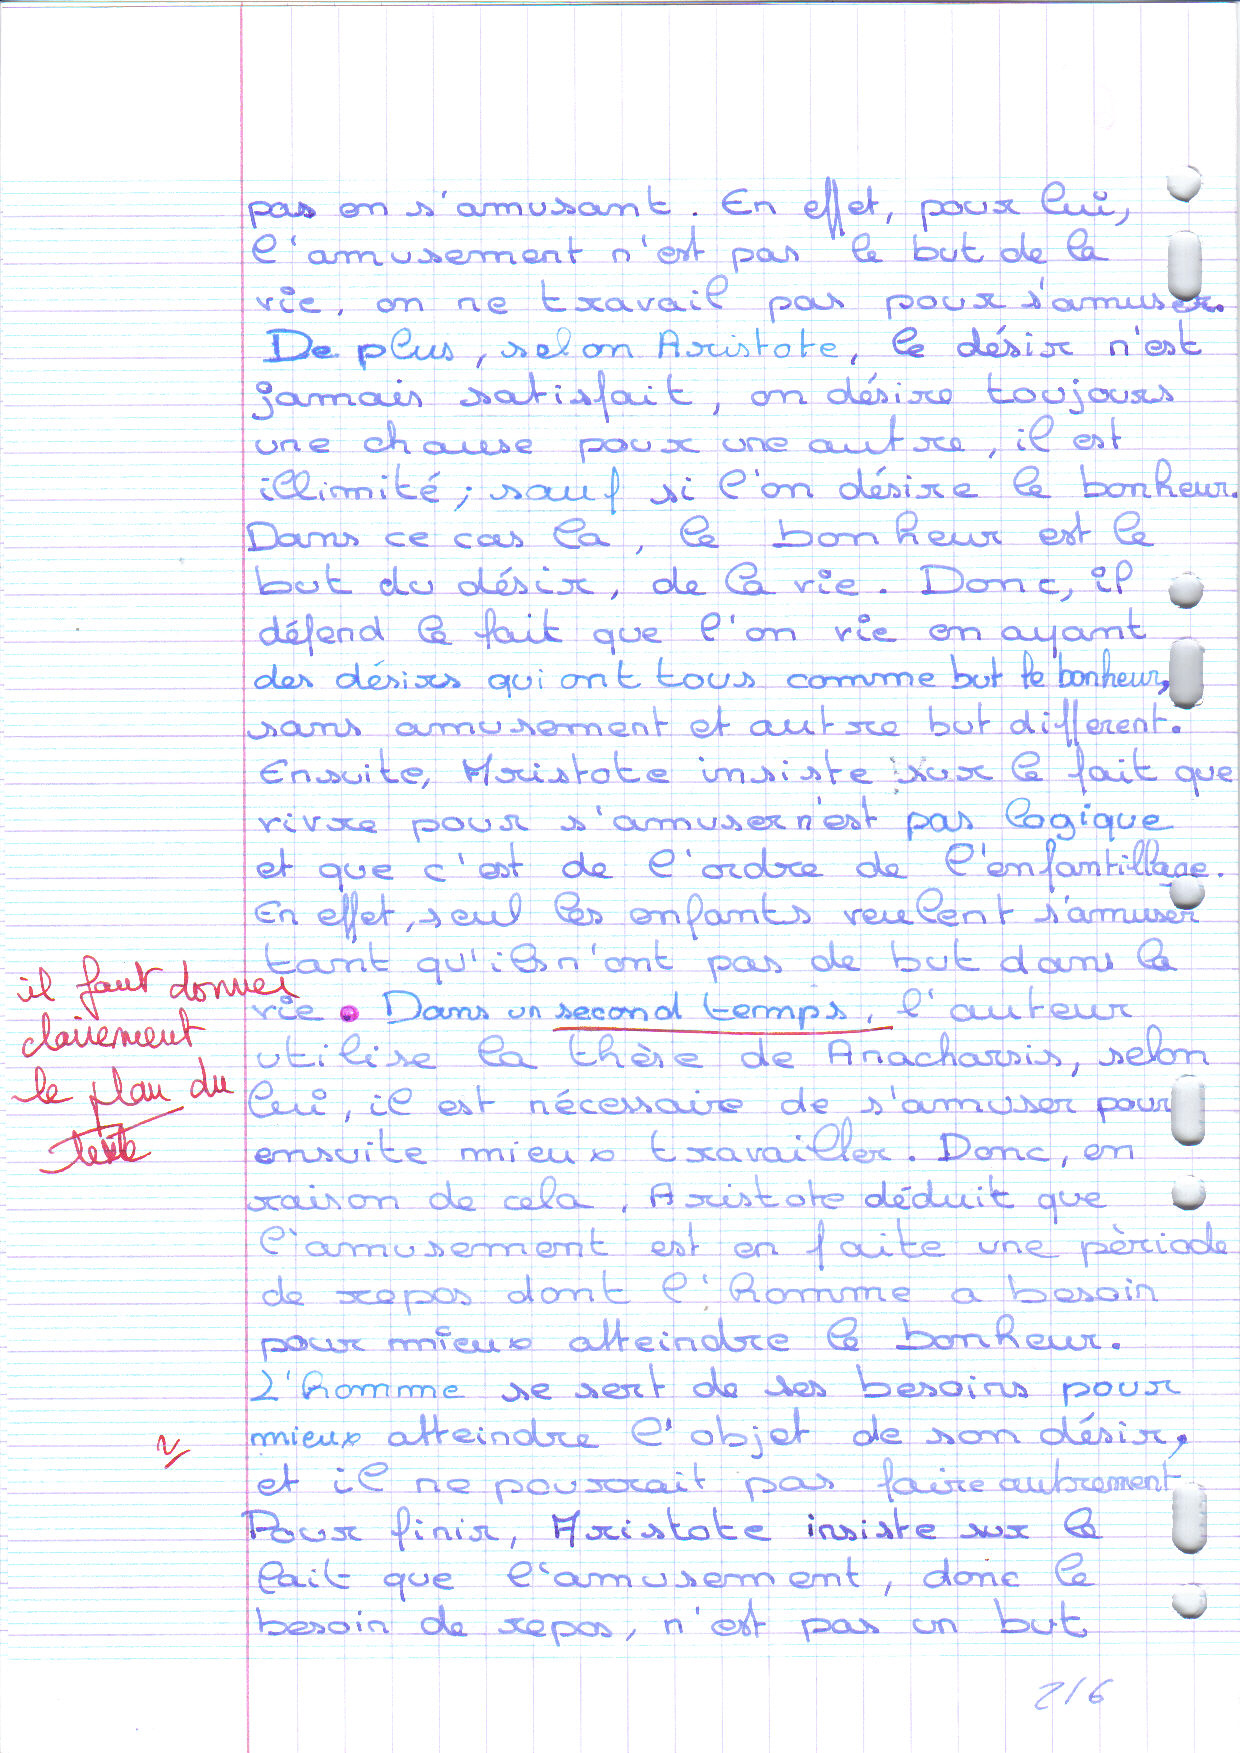 pas en s'amusant. En effet, pour lui,
l'amusement n'est pas le but de la
vie, on ne travail pas pour s'amuser.
De plus, selon Aristote, le désir n'est
jamais satisfait, on désire toujours
une chause pour une autre, il est
illimité, sauf si l'on désire le bonheur.
Dans ce cas la, le bonheur est le
but du désir, de la vie. Donc, il
défend le fait que l'on vie en ayant
des désirs qui ont tous comme but le bonheur,
sans amusement et autre but different.
Ensuite, Aristote insiste sur le fait que
vivre pour s'amuser n'est pas logique
et que c'est de l'ordre de l'enfantillage.
En effet, seul les enfants veulent s'amuser
tant qu'ils n'ont pas de but dans la
vie. Dans un second temps, l'auteur
utilise la thèse de Anacharsis, selon
lui, il est nécessaire de s'amuser pour
ensuite mieux travailler. Donc, en
raison de cela, Aristote déduit que
l'amusement est en faite une période
de repos dont l'homme a besoin
pour mieux atteindre le bonheur.
L'homme se sert de ses besoins pour
mieux atteindre l'objet de son désir,
et il ne pourrait pas faire autrement
Pour finir, Aristote insiste sur le
fait que l'amusement, donc le
besoin de repos, n'est pas un but
il faut donner
clairement
le plan du
texte
2/6